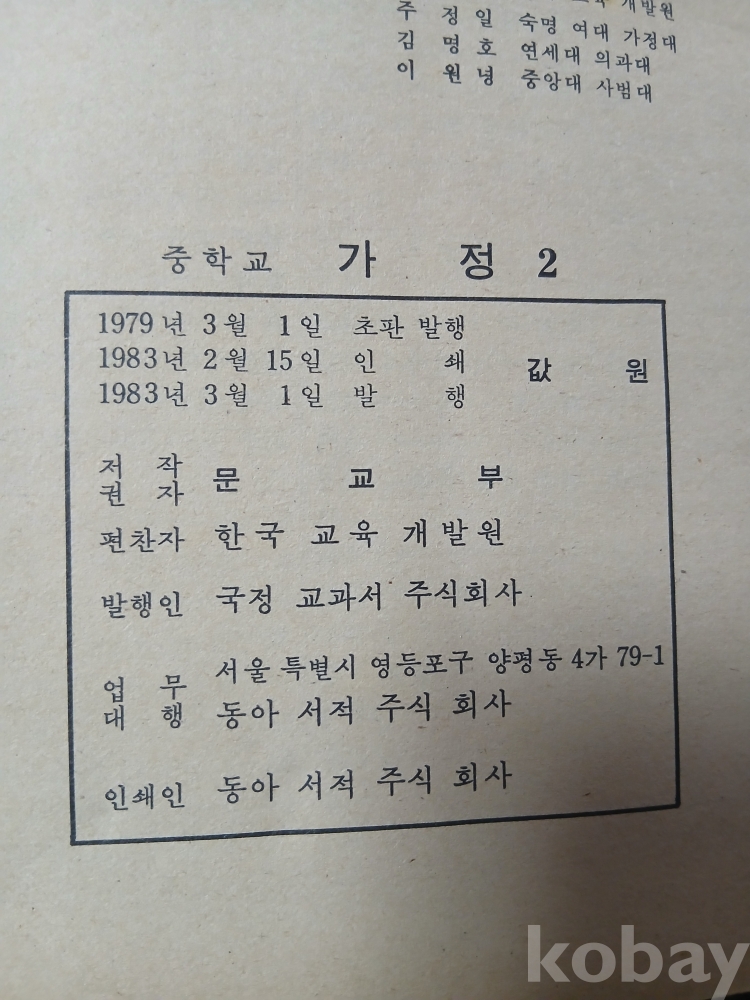 개발원
주 정 일 숙명 여대 가정대
김 명 호 연세대 의과대
이 원 녕 중앙대 사범대
중학교 가 정 2
1979년 3월 1일 초판 발행
1983년 2월 15일 인 쇄
1983년 3월 1일 발 행
값 원
저 작
권 자
문 교 부
편찬자 한국 교육 개발원
발행인 국정 교과서 주식회사
서울 특별시 영등포구 양평동 4가 79-1
업 무
대 행
동아 서적 주식 회사
인쇄인 동아 서적 주식 회사
kobay